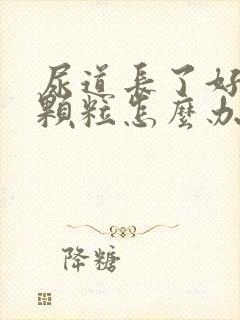 尿道長了好
顆粒怎麼办
降糖